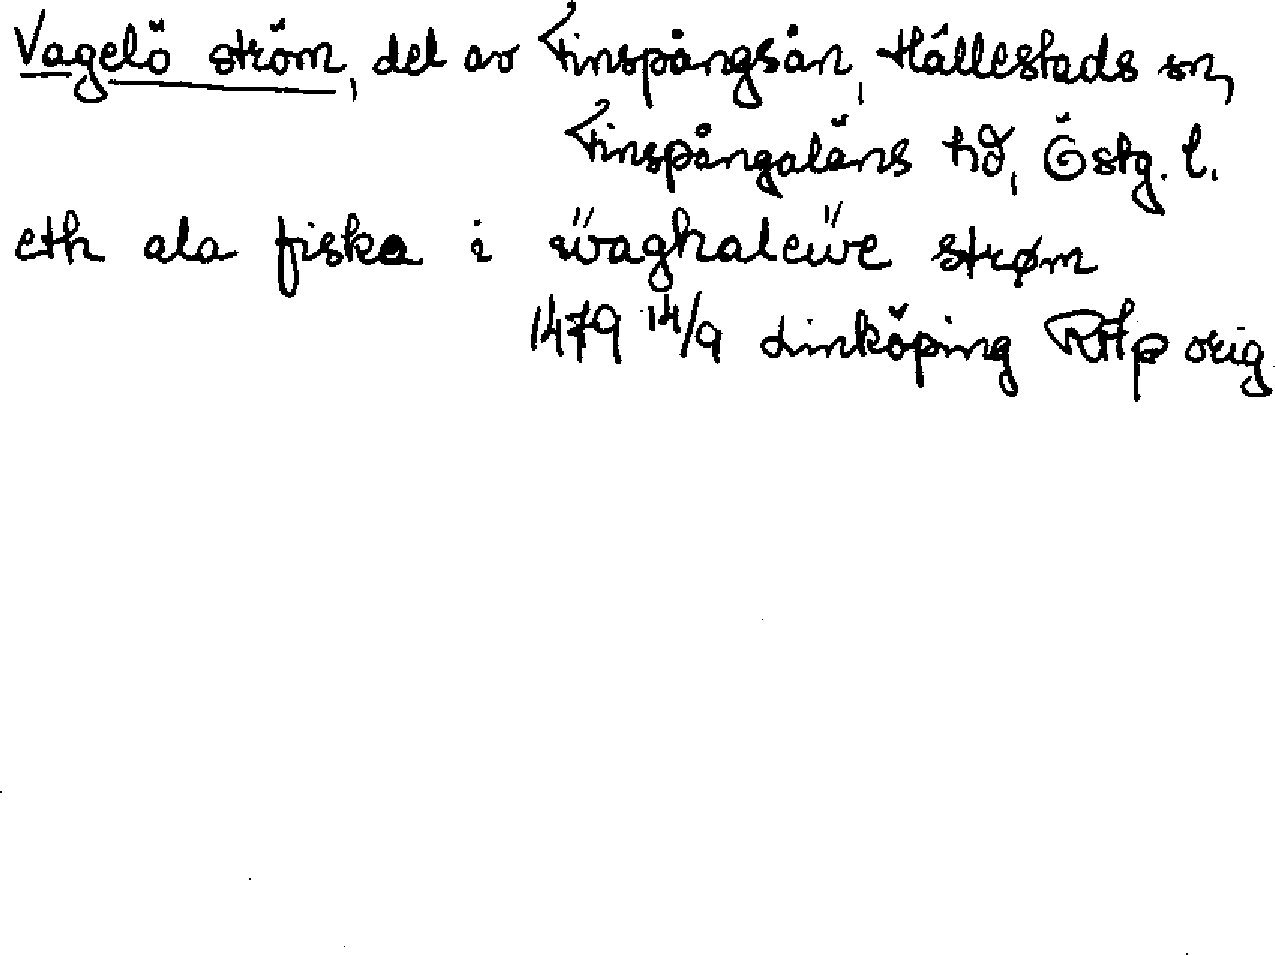 Vagelö ström, del av Finspångsån, Hällestads sn,
Finspångaläns hd, Östg. l.
eth ala fiske i ẅaghaleẅe strøm
1479 14/9 Linköping RAp orig.